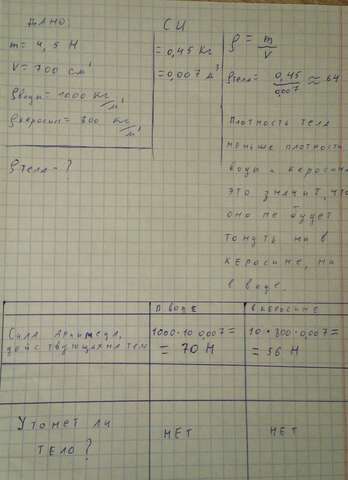 ДАНО:
СИ
m = 4,5 Н
= 0,45 кг
ρ = m/V
V = 700 см³
= 0,007 м³
ρтела = 0,45/0,007 ≈ 64
ρводы = 1000 кг/м³
ρкеросин = 800 кг/м³
ρтела - ?
Плотность тела
меньше плотности
воды и керосина
это значит, что
оно не будет
тонуть ни в
керосине, ни
в воде.
В ВОДЕ
В КЕРОСИНЕ
Сила Архимеда,
действующая на тело
1000·10·0,007 =
= 70 Н
10·800·0,007 =
= 56 Н
Утонет ли
тело?
НЕТ
НЕТ